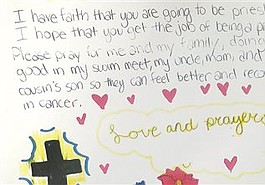 I have faith that you are going to be pries
I hope that you get the job of being a p
Please pray for me and my family, doing
good in my swim meet, my uncle, mom, and
cousin's son so they can feel better and reco
in cancer.
Love and prayers